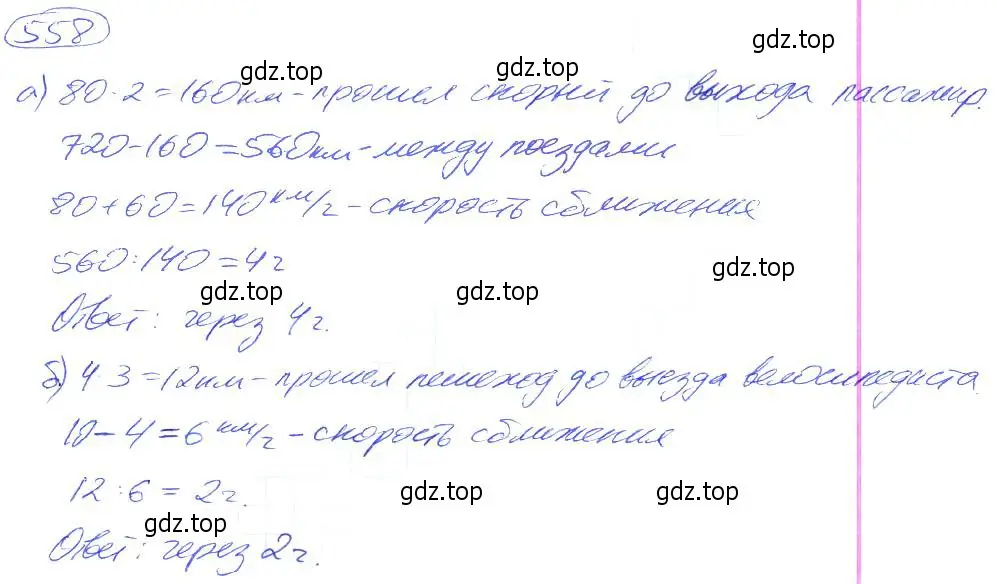 558
gdz.top
gdz.top gdz.top
а) 80·2=160км-прошел скорый до выхода пассажир.
720-160=560км-между поездами
80+60=140км/г-скорость сближения
560:140=4г
gdz.top
gdz.top gdz.top
Ответ: через 4г.
б) 4·3=12км-прошел пешеход до выезда велосипедиста
10-4=6км/г-скорость сближения
12:6=2г.
gdz.top gdz.top
gdz.top
Ответ: через 2г.